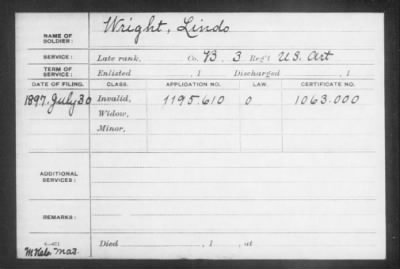 NAME OF SOLDIER: Wright, Lindo
SERVICE: Late rank, Co. B. 3 Reg't U.S. Art
TERM OF SERVICE: Enlisted , 1 Discharged , 1
DATE OF FILING. CLASS. APPLICATION NO. LAW. CERTIFICATE NO.
1897. July 30 Invalid, 1195.610 0 1063.000
Widow,
Minor,
ADDITIONAL SERVICES:
REMARKS:
Died , 1 , at